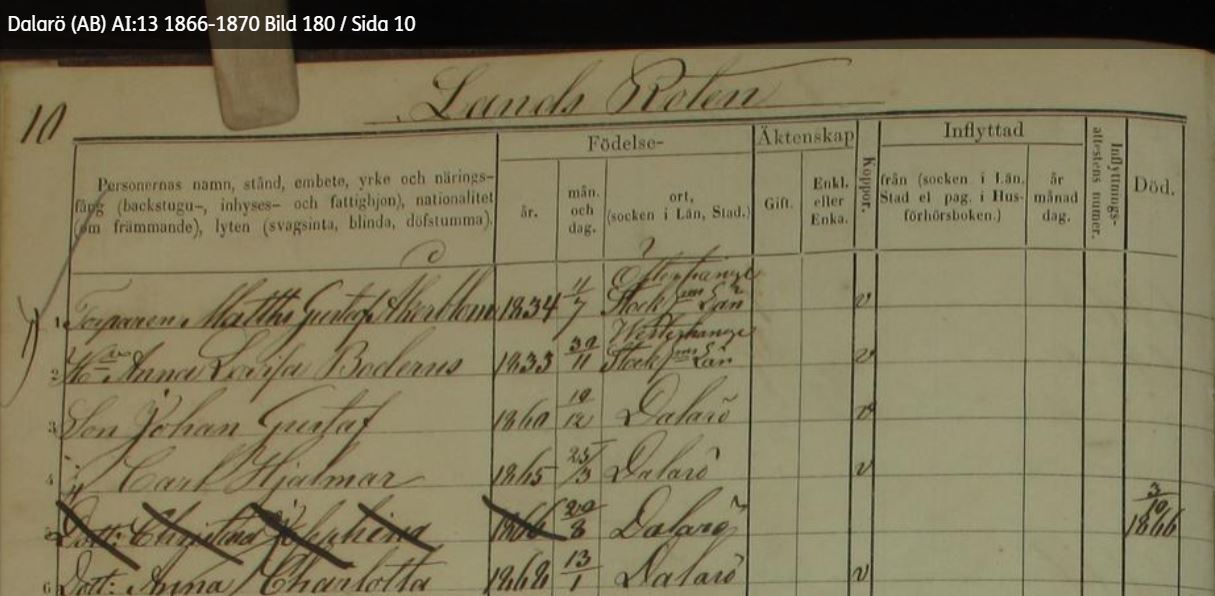 Dalarö (AB) AI:13 1866-1870 Bild 180 / Sida 10
10
Lands Roten
Personernas namn, stånd, embete, yrke och närings-
fång (backstugu-, inhyses- och fattighjon), nationalitet
(om främmande), lyten (svagsinta, blinda, döfstumma).
Födelse-
år.
mån.
och
dag.
ort,
(socken i Län, Stad.)
Äktenskap
Gift.
Enkl.
eller
Enka.
Koppor.
Inflyttad
från (socken i Län,
Stad el pag. i Hus-
förhörsboken.)
år
månad
dag.
Inflyttnings-
attestens numer.
Död.
1 Torparen Matths Gustaf Åkerblom 1834 11/7 Österhaninge Stockhms Län v
2 Hu Anna Lovisa Boderus 1833 30/11 Westerhaninge Stockhms Län v
3 Son Johan Gustaf 1860 10/12 Dalarö v
4 " Carl Hjalmar 1865 25/3 Dalarö v
5 Dott: Christina Josephina 1866 20/8 Dalarö 3/10 1866
6 Dott: Anna Charlotta 1868 13/1 Dalarö v